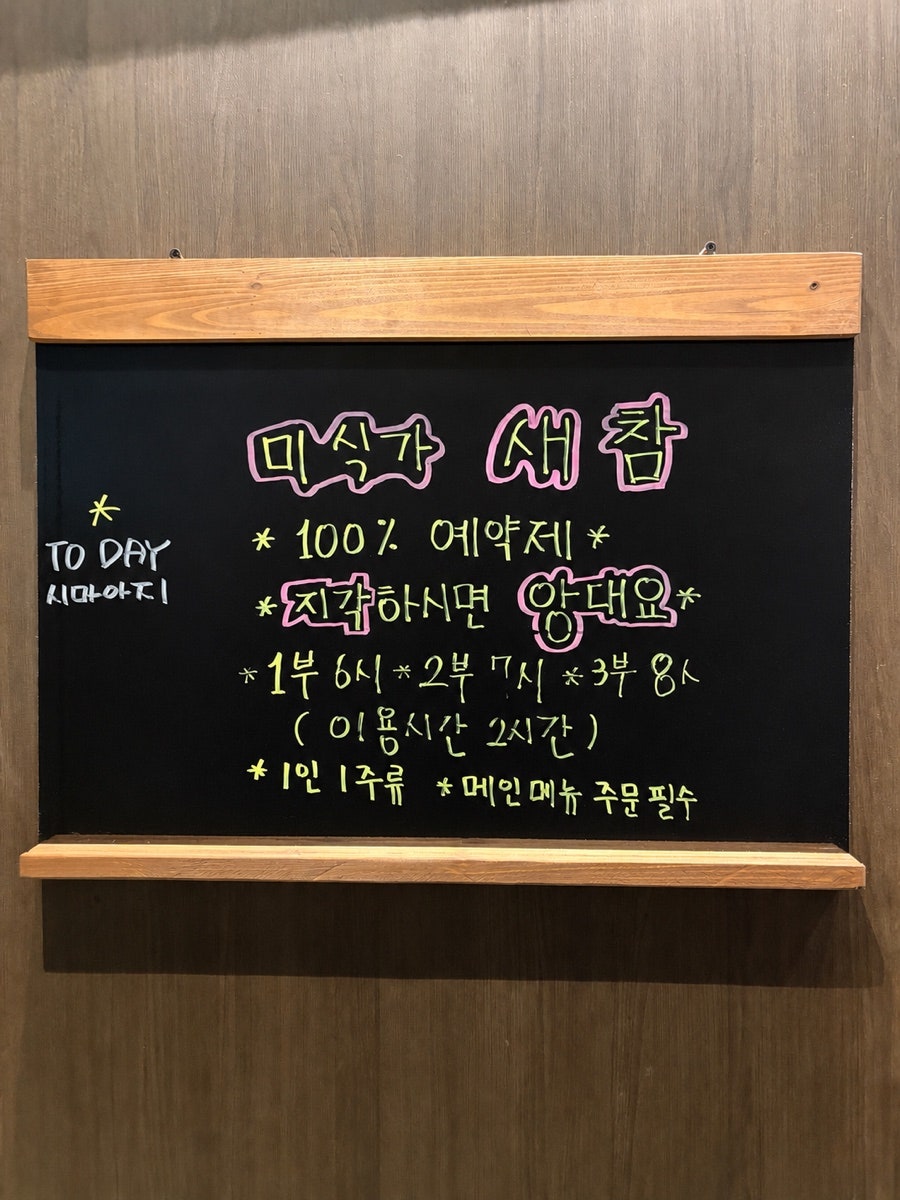 미식가 새참
* 100% 예약제 *
* 지각하시면 앙대요 *
* 1부 6시 * 2부 7시 * 3부 8시
( 이용시간 2시간 )
* 1인 1주류 * 메인메뉴 주문필수
*
TO DAY
시마아지